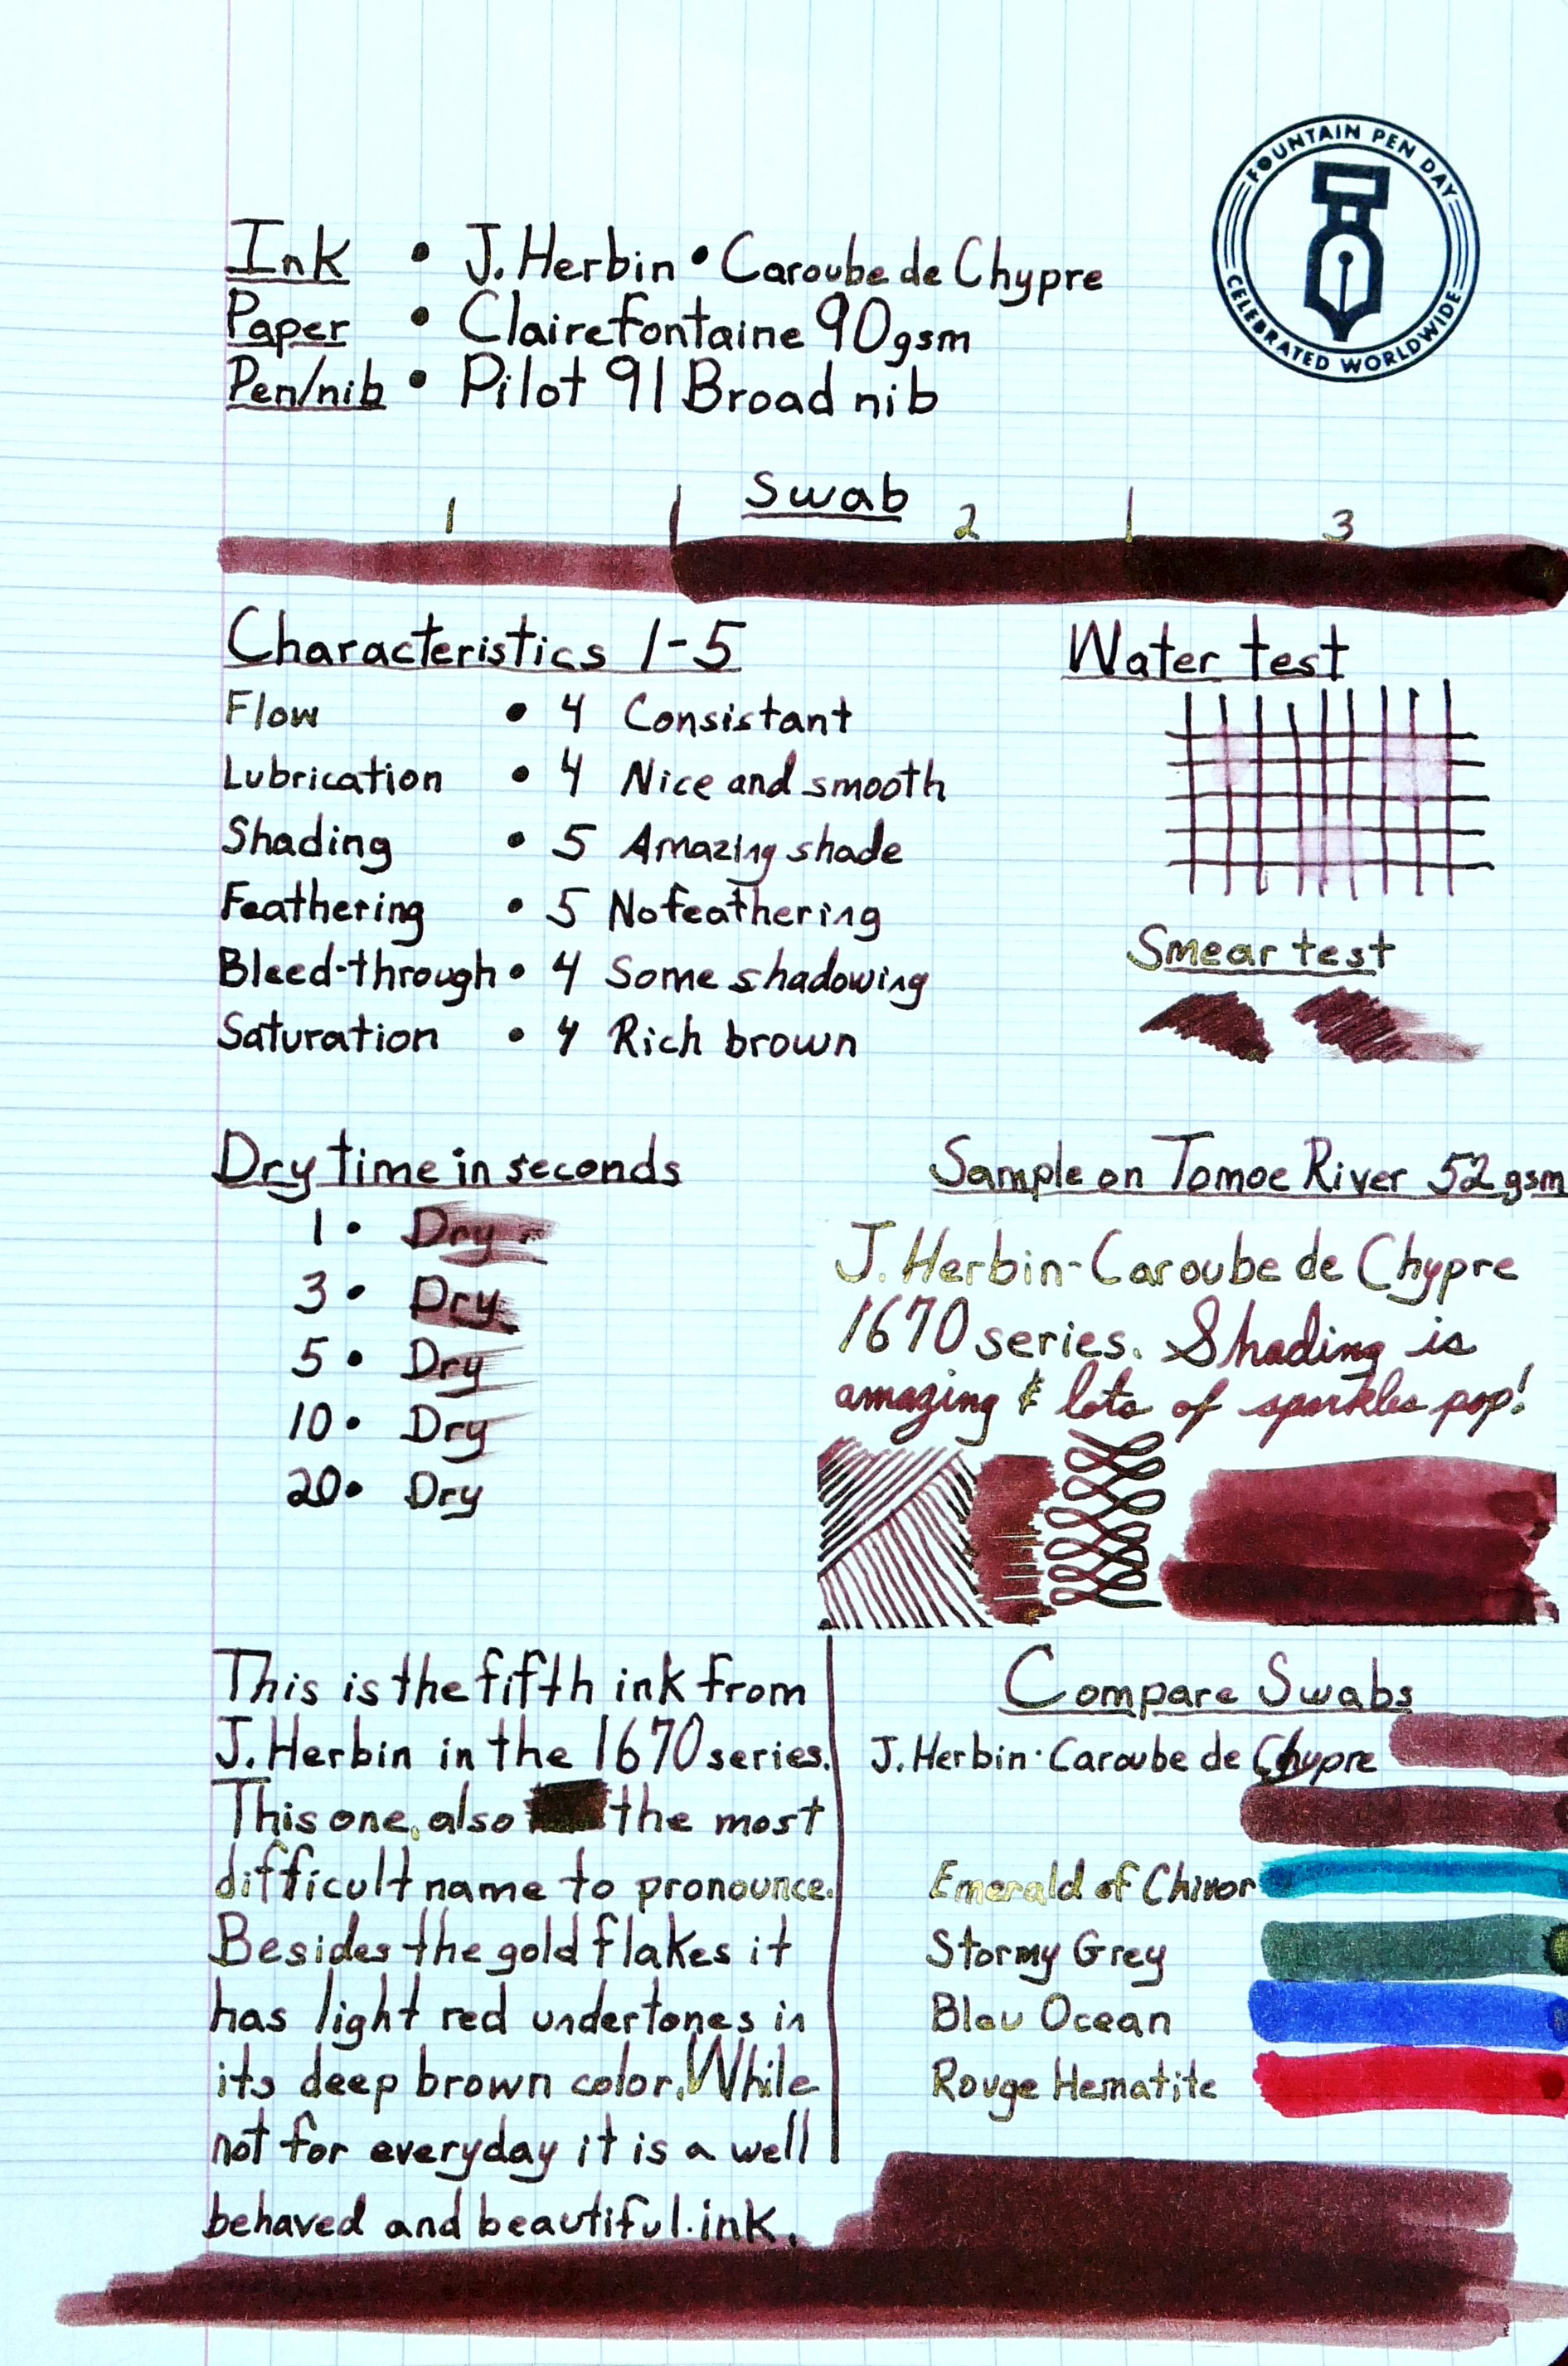 FOUNTAIN PEN DAY
CELEBRATED WORLDWIDE
Ink • J. Herbin • Caroube de Chypre
Paper • Clairefontaine 90gsm
Pen/nib • Pilot 91 Broad nib
Swab
1 2 3
Characteristics 1-5
Flow • 4 Consistant
Lubrication • 4 Nice and smooth
Shading • 5 Amazing shade
Feathering • 5 No feathering
Bleed-through • 4 Some shadowing
Saturation • 4 Rich brown
Water test
Smear test
Dry time in seconds
1 • Dry
3 • Dry
5 • Dry
10 • Dry
20 • Dry
Sample on Tomoe River 52gsm
J. Herbin-Caroube de Chypre
1670 series. Shading is
amazing & lots of sparkles pop!
This is the fifth ink from
J. Herbin in the 1670 series.
This one, also the most
difficult name to pronounce.
Besides the gold flakes it
has light red undertones in
its deep brown color. While
not for everyday it is a well
behaved and beautiful ink.
Compare Swabs
J. Herbin · Caroube de Chypre
Emerald of Chivor
Stormy Grey
Bleu Ocean
Rouge Hematite